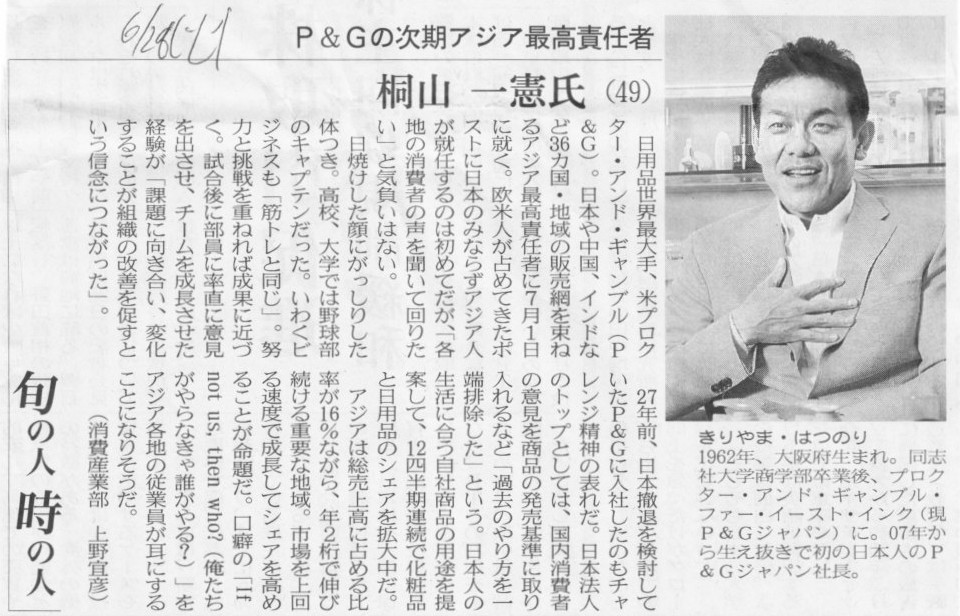 6/28
P&Gの次期アジア最高責任者
桐山 一憲氏（49）
日用品世界最大手、米プロク
ター・アンド・ギャンブル（P
&G）。日本や中国、インドな
ど36カ国・地域の販売網を束ね
るアジア最高責任者に7月1日
に就く。欧米人が占めてきたポ
ストに日本のみならずアジア人
が就任するのは初めてだが、「各
地の消費者の声を聞いて回りた
い」と気負いはない。
日焼けした顔にがっしりした
体つき。高校、大学では野球部
のキャプテンだった。いわくビ
ジネスも「筋トレと同じ」。努
力と挑戦を重ねれば成果に近づ
く。試合後に部員に率直に意見
を出させ、チームを成長させた
経験が「課題に向き合い、変化
することが組織の改善を促すと
いう信念につながった」。
27年前、日本撤退を検討して
いたP&Gに入社したのもチャ
レンジ精神の表れだ。日本法人
のトップとしては、国内消費者
の意見を商品の発売基準に取り
入れるなど「過去のやり方を一
端排除した」という。日本人の
生活に合う自社商品の用途を提
案して、12四半期連続で化粧品
と日用品のシェアを拡大中だ。
アジアは総売上高に占める比
率が16％ながら、年2桁で伸び
続ける重要な地域。市場を上回
る速度で成長してシェアを高め
ることが命題だ。口癖の「If
not us, then who?（俺たち
がやらなきゃ誰がやる？）」を
アジア各地の従業員が耳にする
ことになりそうだ。
（消費産業部　上野宜彦）
きりやま・はつのり
1962年、大阪府生まれ。同志
社大学商学部卒業後、プロク
ター・アンド・ギャンブル・
ファー・イースト・インク（現
P&Gジャパン）に。07年か
ら生え抜きで初の日本人のP
&Gジャパン社長。
旬の人 時の人